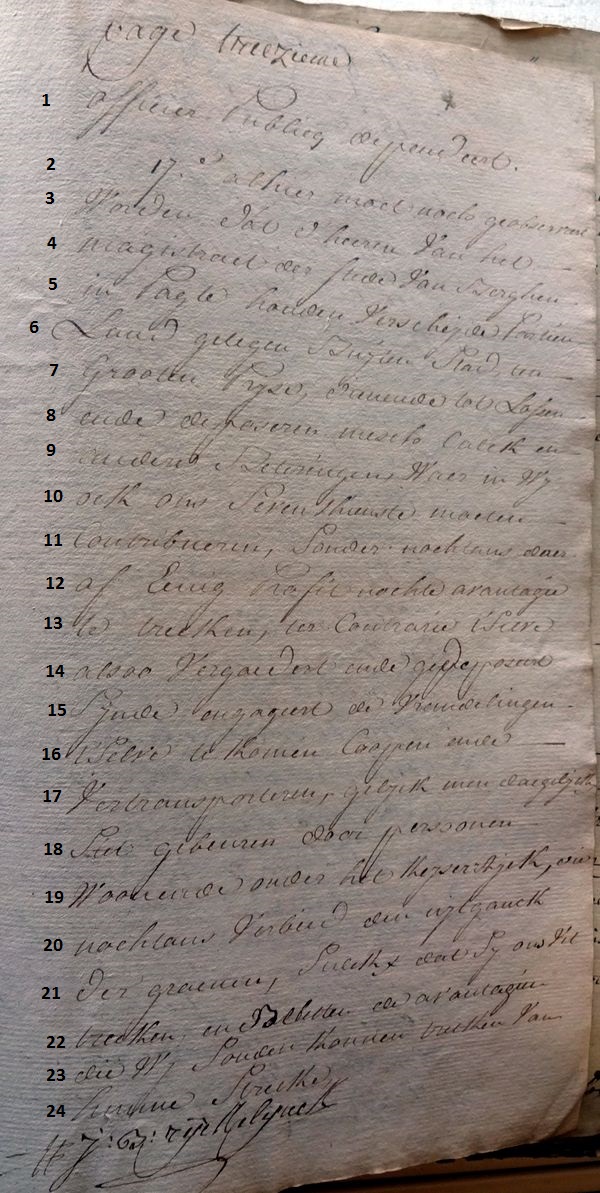 page treizieme
1 officier Publicq dependeert.
2 17.º alhier moet noch geobserveert
3 Worden dat d'heeren Van het
4 magistraet der stede Van Berghen
5 in Pagte houden Verscheyde Partien
6 Land gelegen Buyten Stad, ten
7 Grooten Pryse, dienende tot
8 ende deposeren mesch Calck en
9 andere Vetteringen, Waer in Wy
10 ock ons moeten
11 Contribueren, Sonder nochtans daer
12 af Eenig Profit nochte avantagie
13 te trecken, ter Contrarie t'Selve
14 alsoo Vergadert ende gedeposeert
15 Synde engageert de Vremdelingen
16 t'Selve te komen Coopen ende
17 Vertransporteren, gelyk men daegelykx
18 Siet gebeuren door persoonen
19 Woonende onder het Keyserryck,
20 nochtans Verbied den uytganck
21 der graenen, Sulckx dat Sy ons Uyt
22 trecken, en Beletten de avantagien
23 die Wy Souden konnen trecken Van
24 hunne Streke